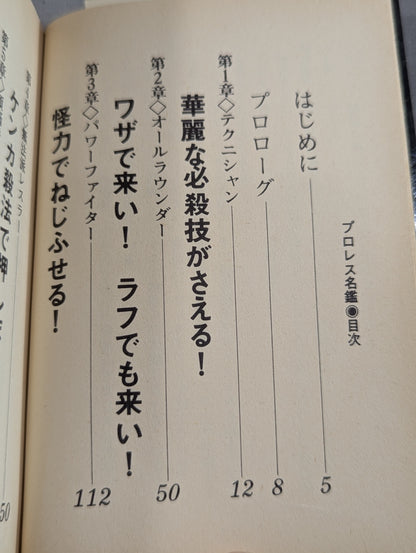 プロレス名鑑◉目次
はじめに 5
プロローグ 8
第1章◇テクニシャン 12
華麗な必殺技がさえる！
第2章◇オールラウンダー 50
ワザで来い！ ラフでも来い！
第3章◇パワーファイター 112
怪力でねじふせる！
レスラー
ケンカ殺法で押
50